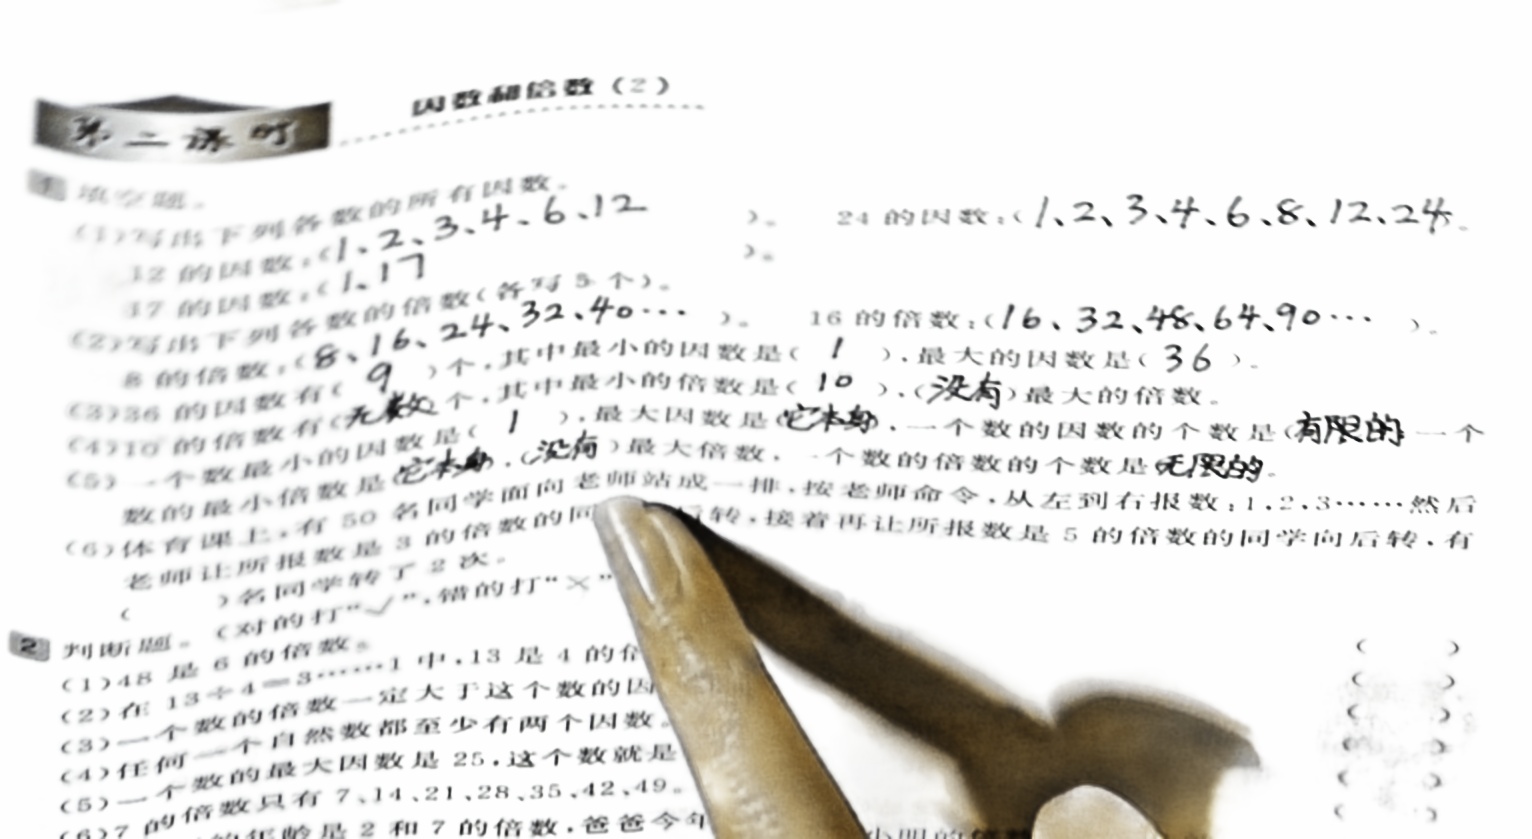 因数和倍数（2）
第二课时
1 填空题。
（1）写出下列各数的所有因数。
12 的因数：（1、2、3、4、6、12 ）。 24 的因数：（1、2、3、4、6、8、12、24。
17 的因数：（1、17 ）。
（2）写出下列各数的倍数（各写 5 个）。
8 的倍数：（8、16、24、32、40… ）。 16 的倍数：（16、32、48、64、90… ）。
（3）36 的因数有（ 9 ）个，其中最小的因数是（ 1 ），最大的因数是（ 36 ）。
（4）10 的倍数有（无数）个，其中最小的倍数是（ 10 ），（没有）最大的倍数。
（5）一个数最小的因数是（ 1 ），最大因数是（它本身，一个数的因数的个数是（有限的 一个
数的最小倍数是（它本身，（没有）最大倍数，一个数的倍数的个数是无限的。
（6）体育课上，有 50 名同学面向老师站成一排，按老师命令，从左到右报数：1，2，3……然后
老师让所报数是 3 的倍数的同 后转，接着再让所报数是 5 的倍数的同学向后转，有
（ ）名同学转了 2 次。
2 判断题。（对的打“✓”，错的打“×”
（1）48 是 6 的倍数。 （ ）
（2）在 13÷4＝3……1 中，13 是 4 的倍 （ ）
（3）一个数的倍数一定大于这个数的因 （ ）
（4）任何一个自然数都至少有两个因数。 （ ）
（5）一个数的最大因数是 25，这个数就是 （ ）
（6）7 的倍数只有 7、14、21、28、35、42、49。 （ ）
的年龄是 2 和 7 的倍数，爸爸今年 小明的倍数